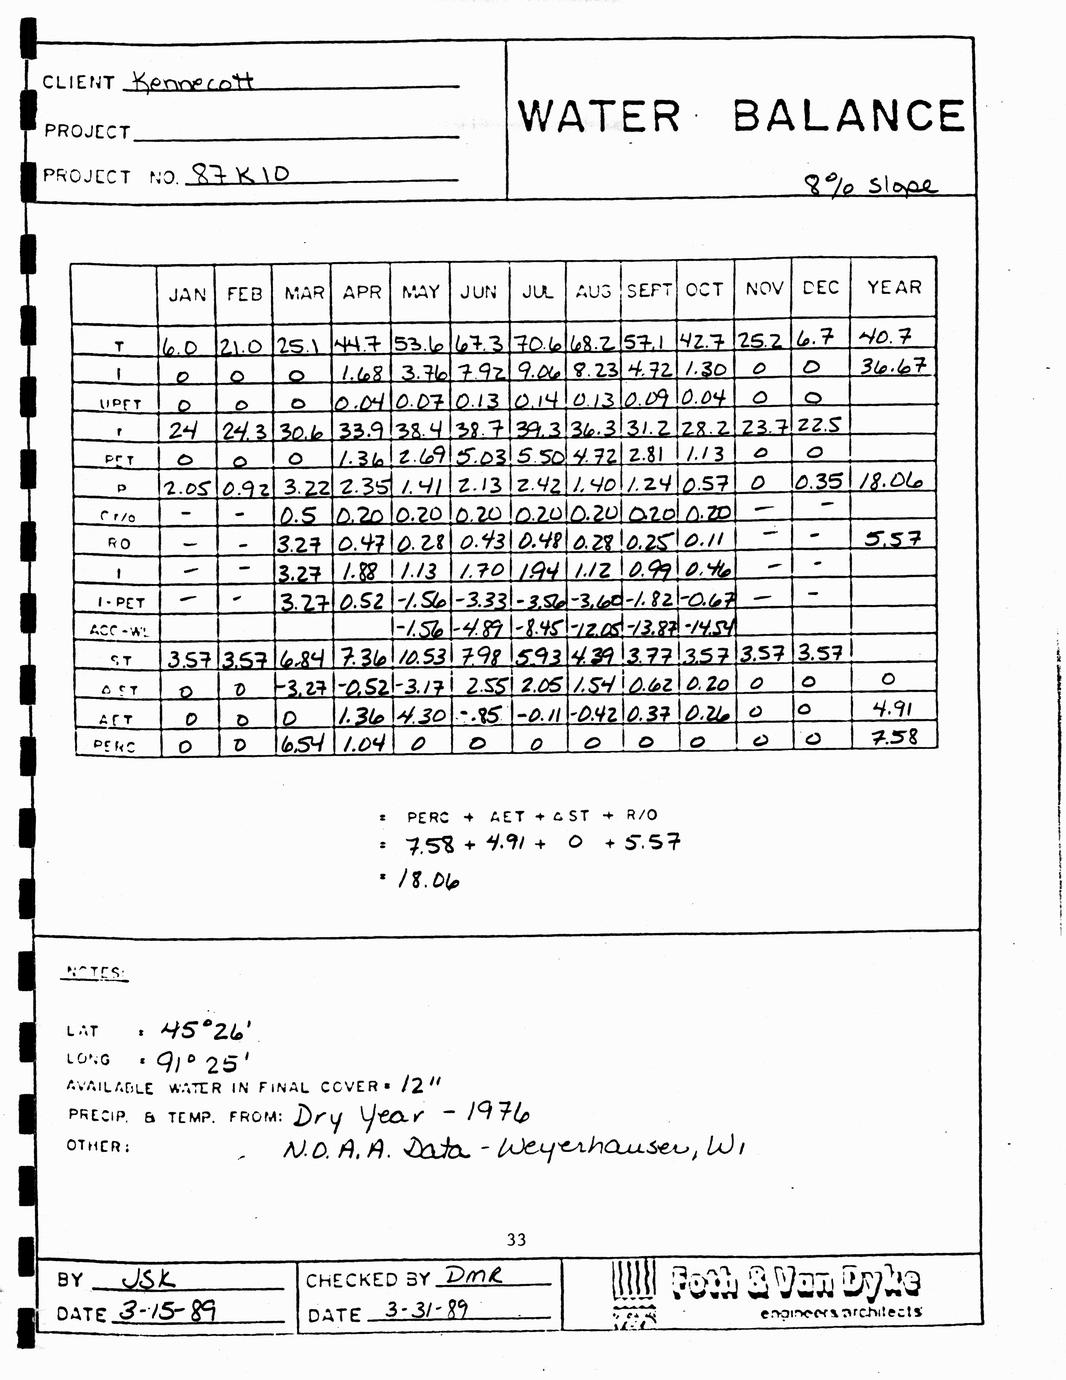 CLIENT Kennecott
PROJECT
PROJECT NO. 87K10
WATER BALANCE
8% slope
JAN FEB MAR APR MAY JUN JUL AUG SEPT OCT NOV DEC YEAR
T 6.0 21.0 25.1 44.7 53.6 67.3 70.6 68.2 57.1 42.7 25.2 6.7 40.7
I 0 0 0 1.68 3.76 7.92 9.06 8.23 4.72 1.30 0 0 36.67
UPET 0 0 0 0.04 0.07 0.13 0.14 0.13 0.09 0.04 0 0
r 24 24.3 30.6 33.9 38.4 38.7 39.3 36.3 31.2 28.2 23.7 22.5
PET 0 0 0 1.36 2.69 5.03 5.50 4.72 2.81 1.13 0 0
P 2.05 0.92 3.22 2.35 1.41 2.13 2.42 1.40 1.24 0.57 0 0.35 18.06
Cr/o - - 0.5 0.20 0.20 0.20 0.20 0.20 0.20 0.20 - -
RO - - 3.27 0.47 0.28 0.43 0.48 0.28 0.25 0.11 - - 5.57
I - - 3.27 1.88 1.13 1.70 1.94 1.12 0.99 0.46 - -
I-PET - - 3.27 0.52 -1.56 -3.33 -3.56 -3.60 -1.82 -0.67 - -
ACC-WL -1.56 -4.89 -8.45 -12.05 -13.87 -14.54
ST 3.57 3.57 6.84 7.36 10.53 7.98 5.93 4.39 3.77 3.57 3.57 3.57
Δ ST 0 0 -3.27 -0.52 -3.17 2.55 2.05 1.54 0.62 0.20 0 0 0
AET 0 0 0 1.36 4.30 -.85 -0.11 -0.42 0.37 0.26 0 0 4.91
PERC 0 0 6.54 1.04 0 0 0 0 0 0 0 0 7.58
= PERC + AET + Δ ST + R/O
= 7.58 + 4.91 + 0 + 5.57
= 18.06
NOTES:
LAT : 45°26'
LONG : 91° 25'
AVAILABLE WATER IN FINAL COVER = 12"
PRECIP. & TEMP. FROM: Dry Year - 1976
OTHER: N.O.A.A. Data - Weyerhauser, WI
33
BY JSK
DATE 3-15-89
CHECKED BY DMR
DATE 3-31-89
Foth & Van Dyke
engineers/architects